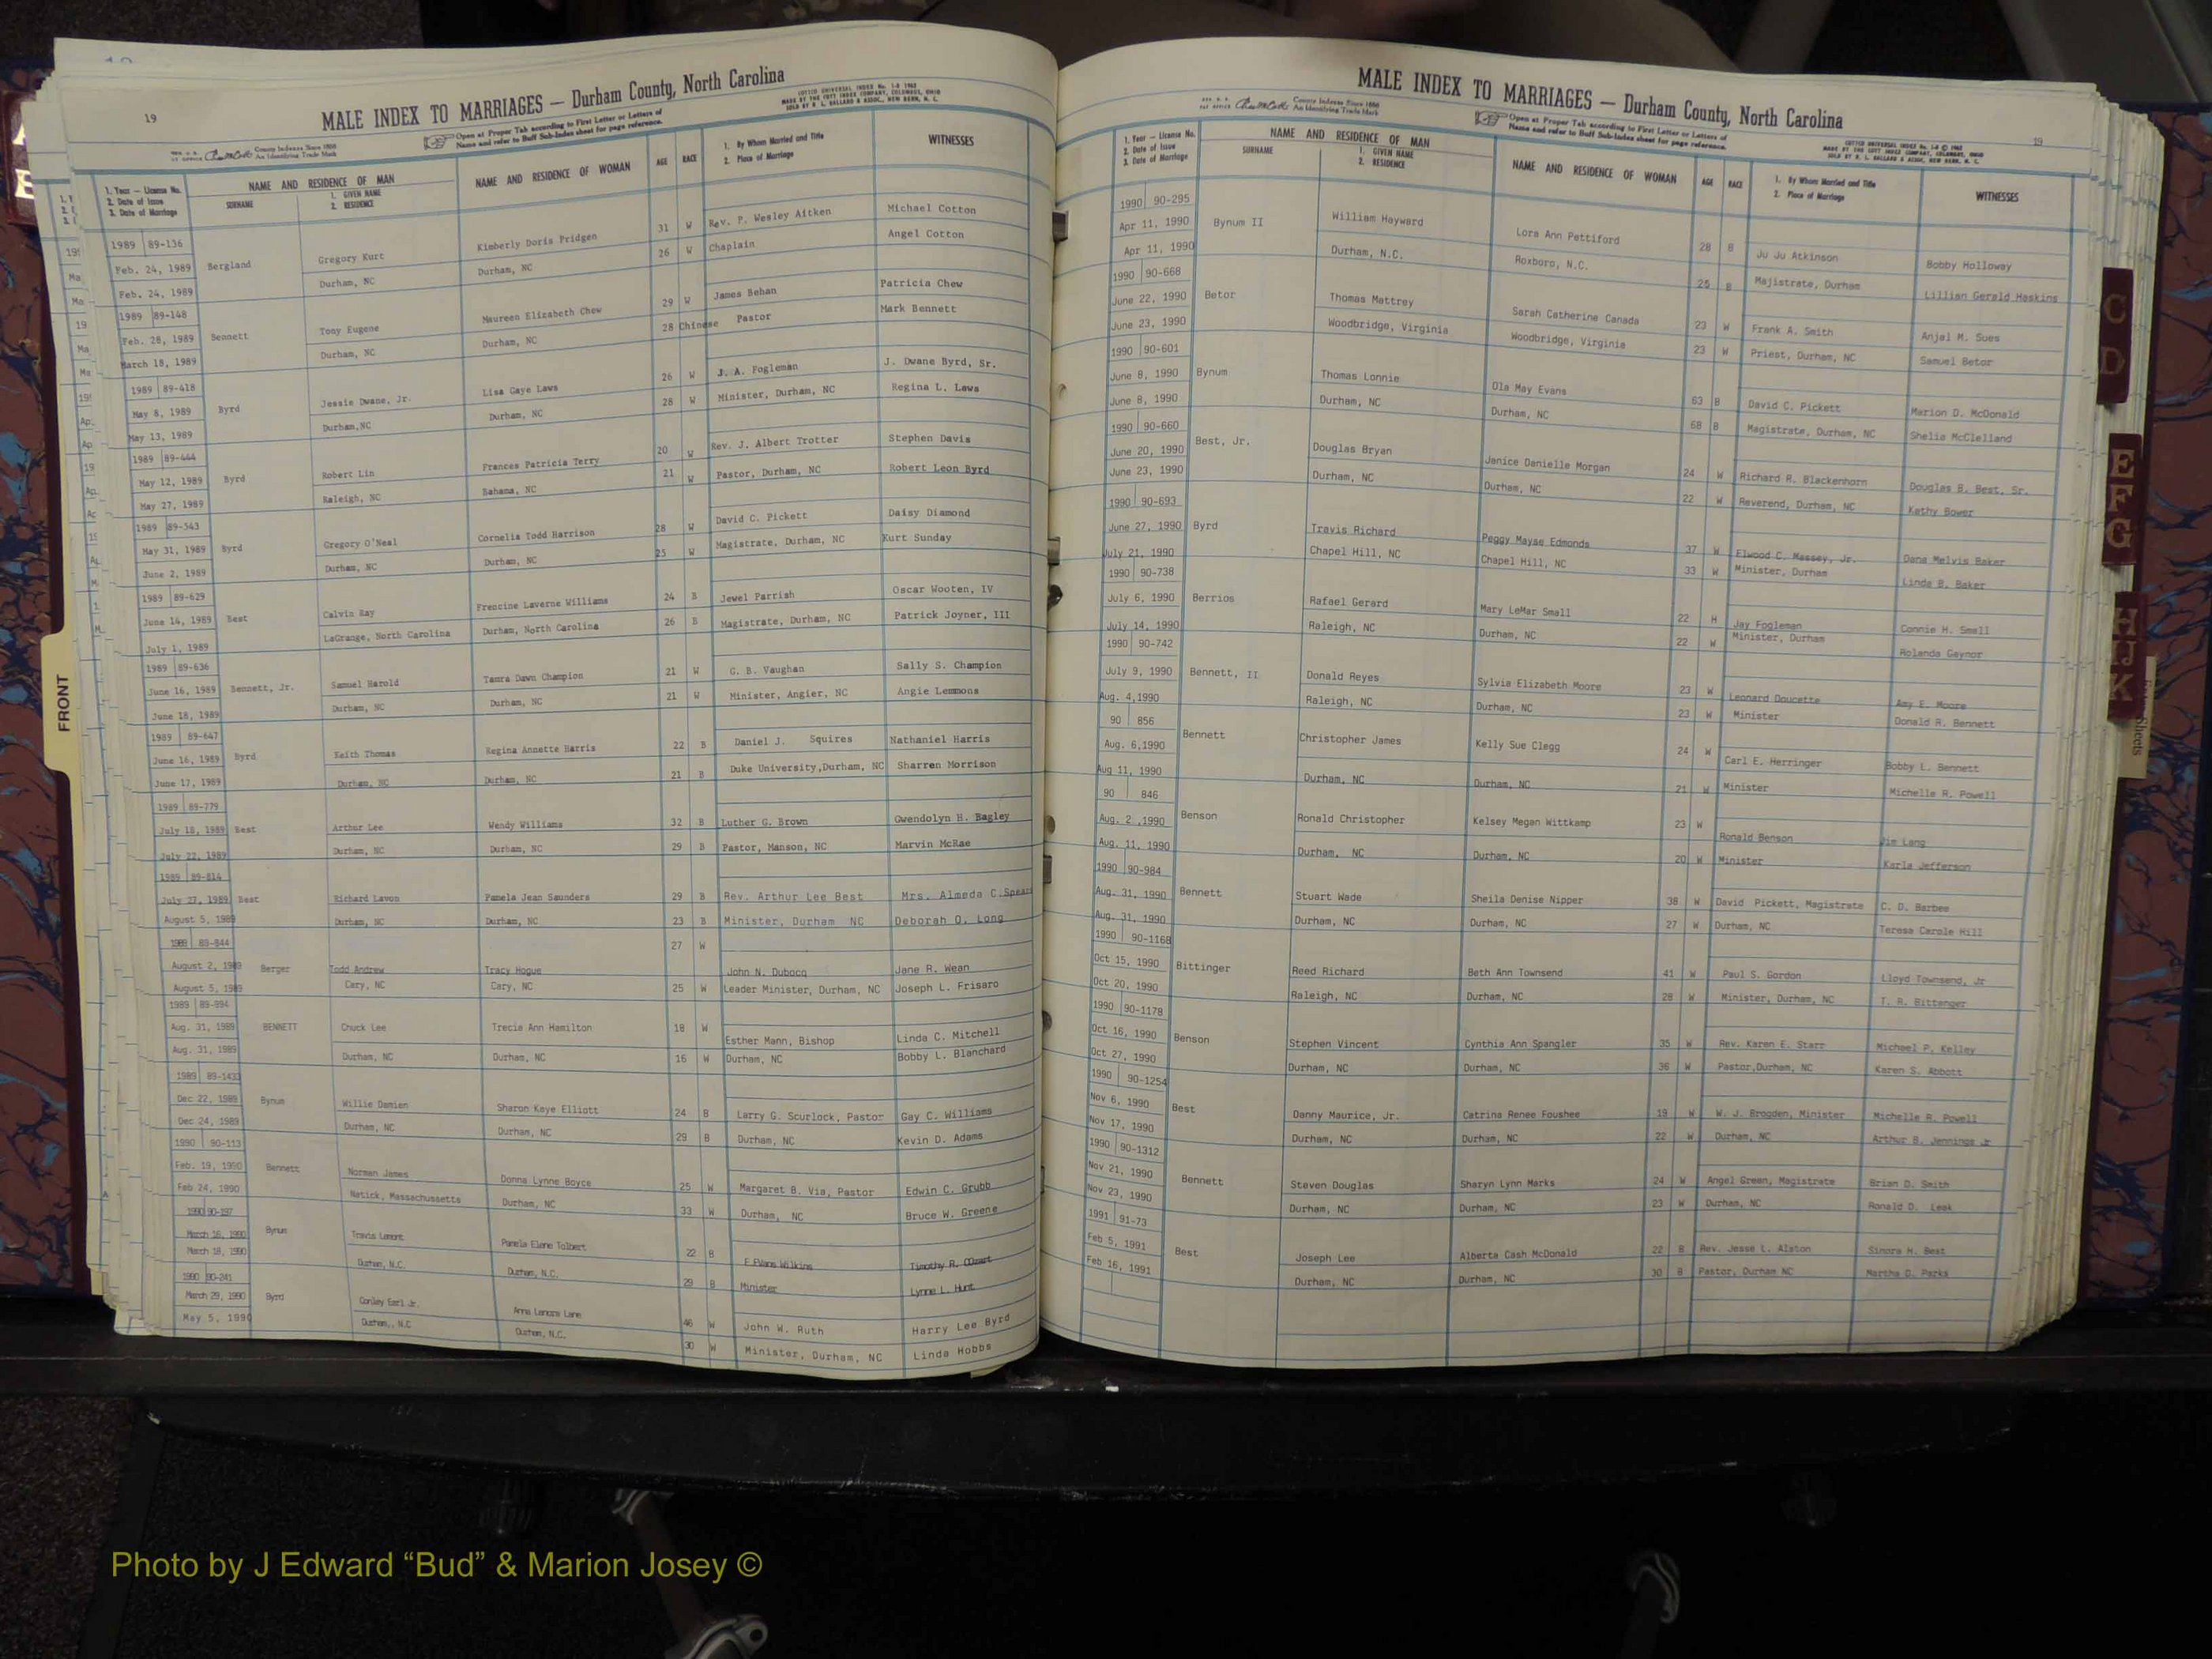 19
MALE INDEX TO MARRIAGES — Durham County, North Carolina
Open at Proper Tab according to First Letter or Letters of
Name and refer to Buff Sub-Index sheet for page reference.
COTT'S UNIVERSAL INDEX No. 1-B 1962
MADE BY THE COTT INDEX COMPANY, COLUMBUS, OHIO
County Indexes Since 1888
An Identifying Trade Mark
1. Year — License No.
2. Date of Issue
3. Date of Marriage
NAME AND RESIDENCE OF MAN
SURNAME
1. GIVEN NAME
2. RESIDENCE
NAME AND RESIDENCE OF WOMAN
AGE
RACE
1. By Whom Married and Title
2. Place of Marriage
WITNESSES
1989 89-136 31 W Rev. P. Wesley Aitken Michael Cotton
Feb. 24, 1989 Bergland Gregory Kurt Kimberly Doris Pridgen 26 W Chaplain Angel Cotton
Feb. 24, 1989 Durham, NC Durham, NC
1989 89-148 29 W James Behan Patricia Chew
Feb. 28, 1989 Bennett Tony Eugene Maureen Elizabeth Chew 28 Chinese Pastor Mark Bennett
March 18, 1989 Durham, NC Durham, NC
1989 89-418 26 W J. A. Fogleman J. Dwane Byrd, Sr.
May 8, 1989 Byrd Jessie Dwane, Jr. Lisa Gaye Laws 28 W Minister, Durham, NC Regina L. Laws
May 13, 1989 Durham,NC Durham, NC
1989 89-444 20 W Rev. J. Albert Trotter Stephen Davis
May 12, 1989 Byrd Robert Lin Frances Patricia Terry 21 W Pastor, Durham, NC Robert Leon Byrd
May 27, 1989 Raleigh, NC Bahama, NC
1989 89-543 28 W David C. Pickett Daisy Diamond
May 31, 1989 Byrd Gregory O'Neal Cornelia Todd Harrison 25 W Magistrate, Durham, NC Kurt Sunday
June 2, 1989 Durham, NC Durham, NC
1989 89-629 24 B Jewel Parrish Oscar Wooten, IV
June 14, 1989 Best Calvin Ray Francine Laverne Williams 26 B Magistrate, Durham, NC Patrick Joyner, III
July 1, 1989 LaGrange, North Carolina Durham, North Carolina
1989 89-636 21 W G. B. Vaughan Sally S. Champion
June 16, 1989 Bennett, Jr. Samuel Harold Tamra Dawn Champion 21 W Minister, Angier, NC Angie Lemmons
June 18, 1989 Durham, NC Durham, NC
1989 89-647 22 B Daniel J. Squires Nathaniel Harris
June 16, 1989 Byrd Keith Thomas Regina Annette Harris 21 B Duke University,Durham, NC Sharren Morrison
June 17, 1989 Durham, NC Durham, NC
1989 89-779
July 18, 1989 Best Arthur Lee Wendy Williams 32 B Luther G. Brown Gwendolyn H. Bagley
July 22, 1989 Durham, NC Durham, NC 29 B Pastor, Manson, NC Marvin McRae
1989 89-814
July 27, 1989 Best Richard Lavon Pamela Jean Saunders 29 B Rev. Arthur Lee Best Mrs. Almeda C.Spears
August 5, 1989 Durham, NC Durham, NC 23 B Minister, Durham NC Deborah O. Long
1989 89-844 27 W
August 2, 1989 Berger Todd Andrew Tracy Hogue John N. Dubocq Jane R. Wean
August 5, 1989 Cary, NC Cary, NC 25 W Leader Minister, Durham, NC Joseph L. Frisaro
1989 89-994
Aug. 31, 1989 BENNETT Chuck Lee Trecia Ann Hamilton 18 W Esther Mann, Bishop Linda C. Mitchell
Aug. 31, 1989 Durham, NC Durham, NC 16 W Durham, NC Bobby L. Blanchard
1989 89-1433
Dec 22, 1989 Bynum Willie Damien Sharon Kaye Elliott 24 B Larry G. Scurlock, Pastor Gay C. Williams
Dec 24, 1989 Durham, NC Durham, NC 29 B Durham, NC Kevin D. Adams
1990 90-113
Feb. 19, 1990 Bennett Norman James Donna Lynne Boyce 25 W Margaret B. Via, Pastor Edwin C. Grubb
Feb 24, 1990 Natick, Massachussetts Durham, NC 33 W Durham, NC Bruce W. Greene
1990 90-197
March 16, 1990 Bynum Travis Lamont Pamela Elene Tolbert 22 B E Evans Wilkins Timothy R.
March 18, 1990 Durham, N.C. Durham, N.C. 29 B Minister Lynne L. Hunt
1990 90-241
March 29, 1990 Byrd Conley Earl Jr. Anna Lenora Lane 46 W John W. Ruth Harry Lee Byrd
May 5, 1990 Durham, N.C Durham, N.C. 30 W Minister, Durham, NC Linda Hobbs
MALE INDEX TO MARRIAGES — Durham County, North Carolina
19
County Indexes Since 1888
An Identifying Trade Mark
Open at Proper Tab according to First Letter or Letters of
Name and refer to Buff Sub-Index sheet for page reference.
1. Year — License No.
2. Date of Issue
3. Date of Marriage
NAME AND RESIDENCE OF MAN
SURNAME
1. GIVEN NAME
2. RESIDENCE
NAME AND RESIDENCE OF WOMAN
AGE
RACE
1. By Whom Married and Title
2. Place of Marriage
WITNESSES
1990 90-295
Apr 11, 1990 Bynum II William Hayward Lora Ann Pettiford 28 B Ju Ju Atkinson Bobby Holloway
Apr 11, 1990 Durham, N.C. Roxboro, N.C. 25 B Majistrate, Durham Lillian Gerald Haskins
1990 90-668
June 22, 1990 Betor Thomas Mattrey Sarah Catherine Canada 23 W Frank A. Smith Anjal M. Sues
June 23, 1990 Woodbridge, Virginia Woodbridge, Virginia 23 W Priest, Durham, NC Samuel Betor
1990 90-601
June 8, 1990 Bynum Thomas Lonnie Ola May Evans 63 B David C. Pickett Marion D. McDonald
June 8, 1990 Durham, NC Durham, NC 68 B Magistrate, Durham, NC Shelia McClelland
1990 90-660
June 20, 1990 Best, Jr. Douglas Bryan Janice Danielle Morgan 24 W Richard R. Blackenhorn Douglas B. Best, Sr.
June 23, 1990 Durham, NC Durham, NC 22 W Reverend, Durham, NC Kathy Bower
1990 90-693
June 27, 1990 Byrd Travis Richard Peggy Mayse Edmonds 37 W Elwood C. Massey, Jr. Dana Melvis Baker
July 21, 1990 Chapel Hill, NC Chapel Hill, NC 33 W Minister, Durham Linda B. Baker
1990 90-738
July 6, 1990 Berrios Rafael Gerard Mary LeMar Small 22 H Jay Fogleman Connie H. Small
July 14, 1990 Raleigh, NC Durham, NC 22 W Minister, Durham Rolanda Gaynor
1990 90-742
July 9, 1990 Bennett, II Donald Reyes Sylvia Elizabeth Moore 23 W Leonard Doucette Amy E. Moore
Aug. 4,1990 Raleigh, NC Durham, NC 23 W Minister Donald R. Bennett
90 856
Aug. 6,1990 Bennett Christopher James Kelly Sue Clegg 24 W Carl E. Herringer Bobby L. Bennett
Aug 11, 1990 Durham, NC Durham, NC 21 W Minister Michelle R. Powell
90 846
Aug. 2 ,1990 Benson Ronald Christopher Kelsey Megan Wittkamp 23 W Ronald Benson Jim Lang
Aug. 11, 1990 Durham, NC Durham, NC 20 W Minister Karla Jefferson
1990 90-984
Aug. 31, 1990 Bennett Stuart Wade Sheila Denise Nipper 38 W David Pickett, Magistrate C. D. Barbee
Aug. 31, 1990 Durham, NC Durham, NC 27 W Durham, NC Teresa Carole Hill
1990 90-1168
Oct 15, 1990 Bittinger Reed Richard Beth Ann Townsend 41 W Paul S. Gordon Lloyd Townsend, Jr
Oct 20, 1990 Raleigh, NC Durham, NC 28 W Minister, Durham, NC T. R. Bittenger
1990 90-1178
Oct 16, 1990 Benson Stephen Vincent Cynthia Ann Spangler 35 W Rev. Karen E. Starr Michael P. Kelley
Oct 27, 1990 Durham, NC Durham, NC 36 W Pastor,Durham, NC Karen S. Abbott
1990 90-1254
Nov 6, 1990 Best Danny Maurice, Jr. Catrina Renee Foushee 19 W W. J. Brogden, Minister Michelle R. Powell
Nov 17, 1990 Durham, NC Durham, NC 22 W Durham, NC Arthur B. Jennings Jr
1990 90-1312
Nov 21, 1990 Bennett Steven Douglas Sharyn Lynn Marks 24 W Angel Green, Magistrate Brian D. Smith
Nov 23, 1990 Durham, NC Durham, NC 23 W Durham, NC Ronald D. Leak
1991 91-73
Feb 5, 1991 Best Joseph Lee Alberta Cash McDonald 22 B Rev. Jesse L. Alston Sinora H. Best
Feb 16, 1991 Durham, NC Durham, NC 30 B Pastor, Durham NC Martha D. Parks
FRONT
C
D
E
F
G
H
IJ
K
Photo by J Edward “Bud” & Marion Josey ©